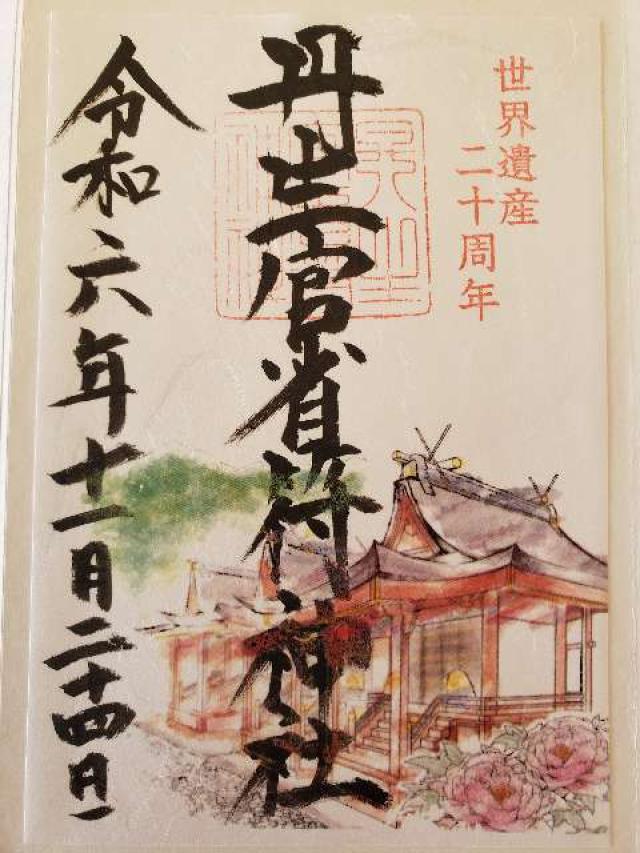 世界遺産
二十周年
丹生官省符神社
令和六年十一月二十四日